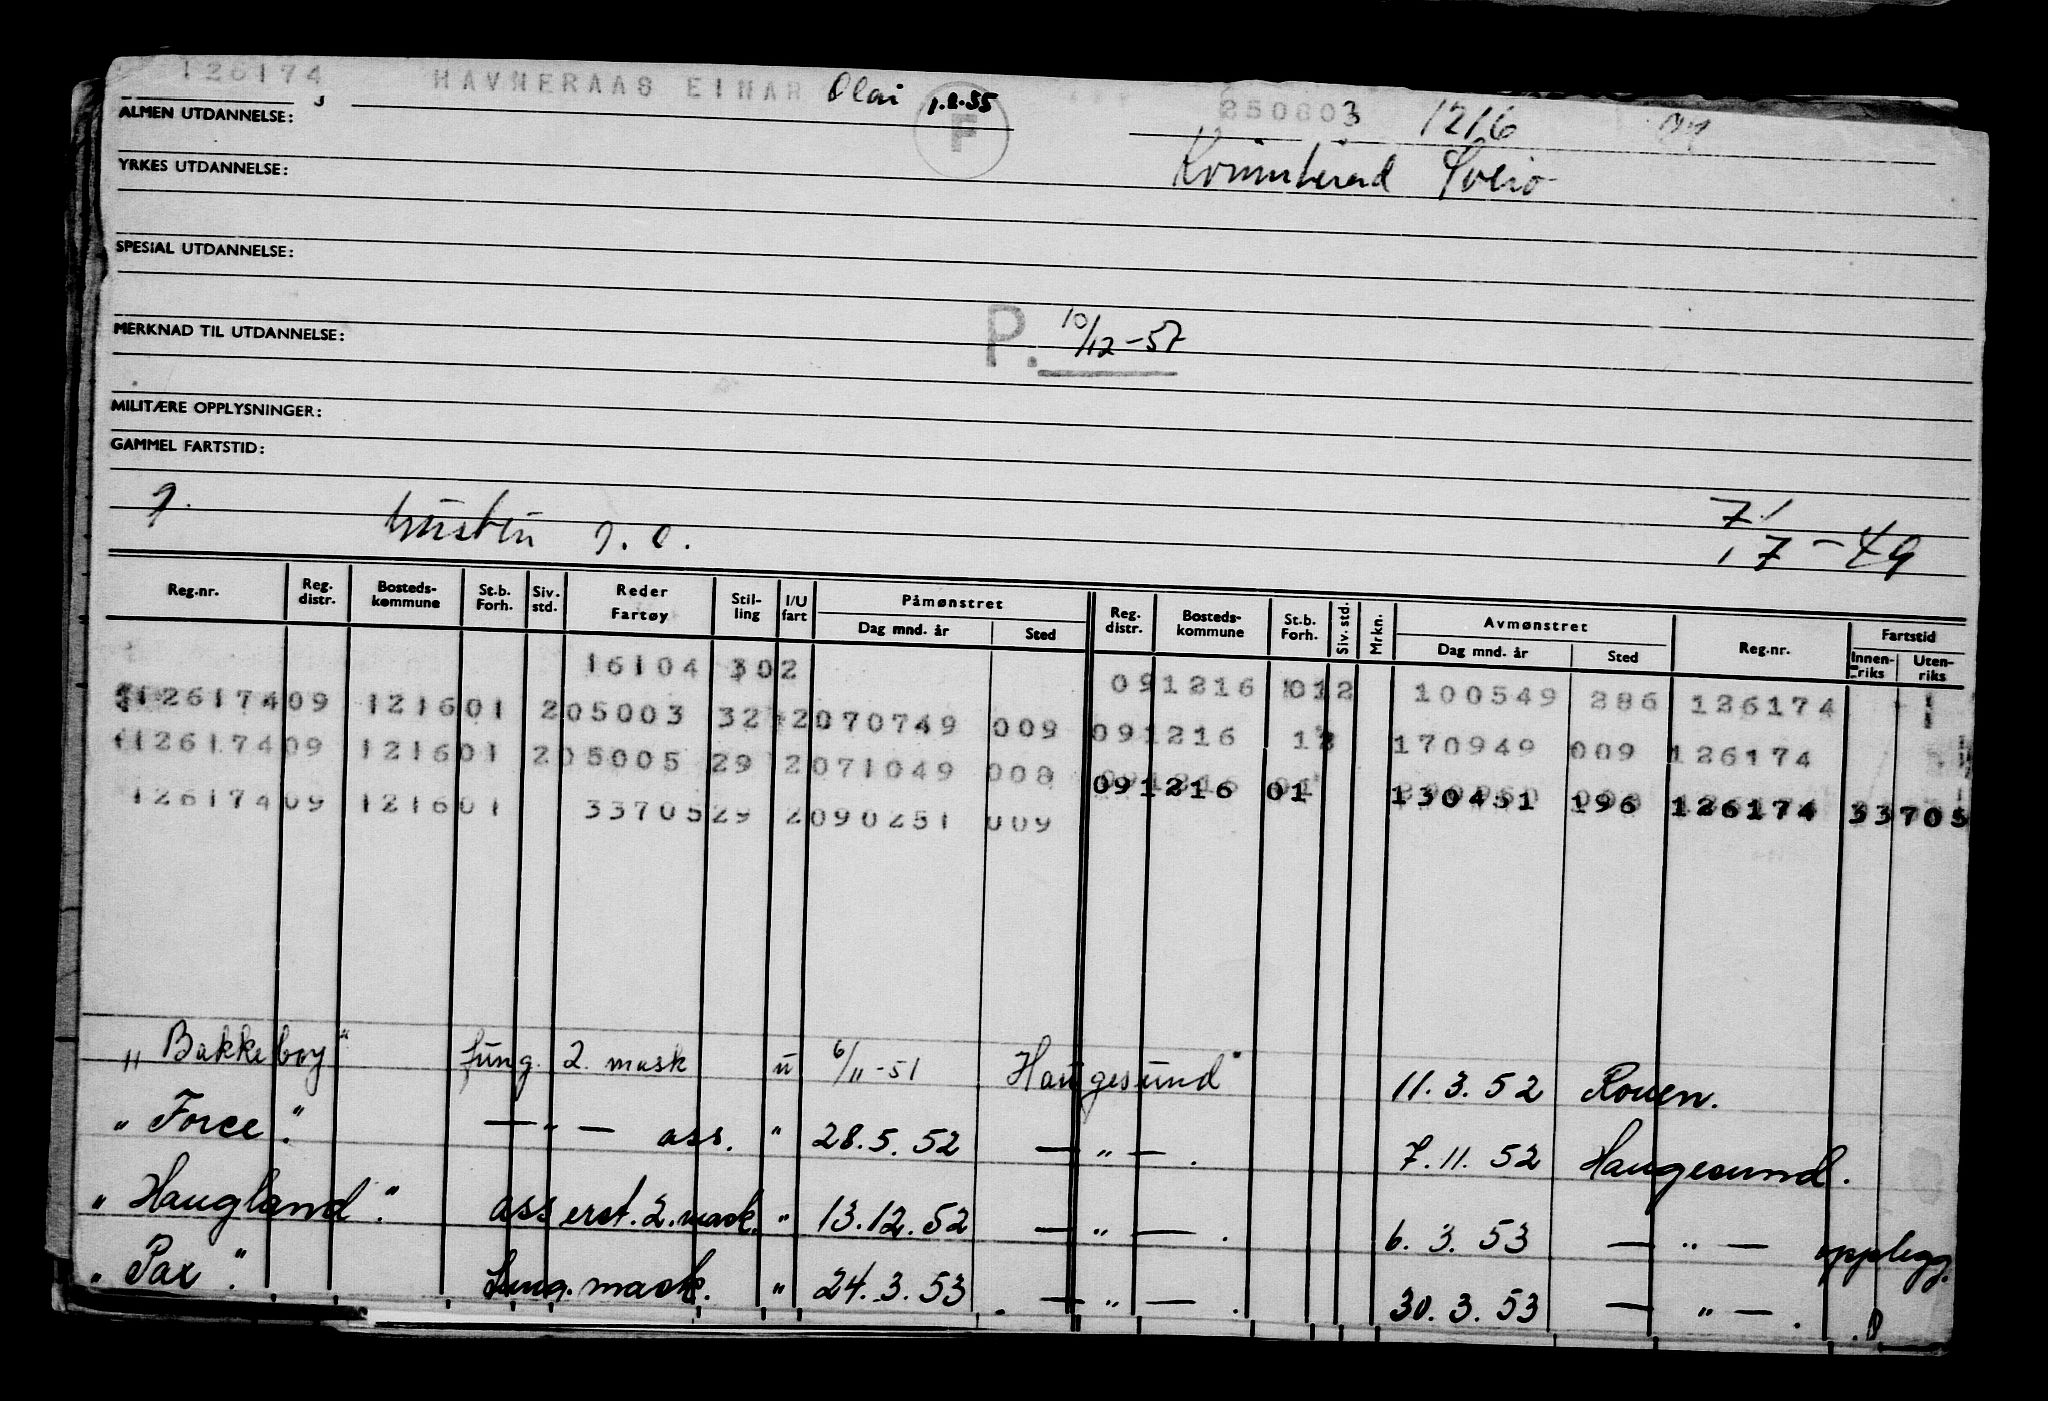 126174 HAVNERAAS EINAR Olai 1.2.55 250603 1216
ALMEN UTDANNELSE: F
YRKES UTDANNELSE: Sveio
SPESIAL UTDANNELSE:
MERKNAD TIL UTDANNELSE: P. 10/12-57
MILITÆRE OPPLYSNINGER:
GAMMEL FARTSTID:
7/
17-49
Reg.nr. Reg. distr. Bosteds-kommune St.b. Forh. Siv. std. Reder Fartøy Stil-ling I/U fart Påmønstret Dag mnd. år Sted Reg. distr. Bosteds-kommune St.b. Forh. Siv. std. Mrkn. Avmønstret Dag mnd. år Sted Reg.nr. Fartstid Innen-riks Uten-riks
16104 302 091216 012 100549 286 126174
126174 09 1216 01 2 05003 32 2 070749 009 091216 170949 009 126174
126174 09 1216 01 2 05005 29 2 071049 008 091216 01 130451 196 126174 33705
126174 09 1216 01 33705 29 2 090251 009
„Bakkeboy" fung. 2. mask u 6/11-51 Haugesund 11.3.52 Rouen.
„Force". — „ — ass. " 28.5.52 — „ — . 7.11.52 Haugesund.
„Haugland". ass erst. 2. mask. " 13.12.52 — „ — . 6.3.53 — „ — opplegg.
„Pax". fung. mask. " 24.3.53. — „ — . 30.3.53 — „ — .